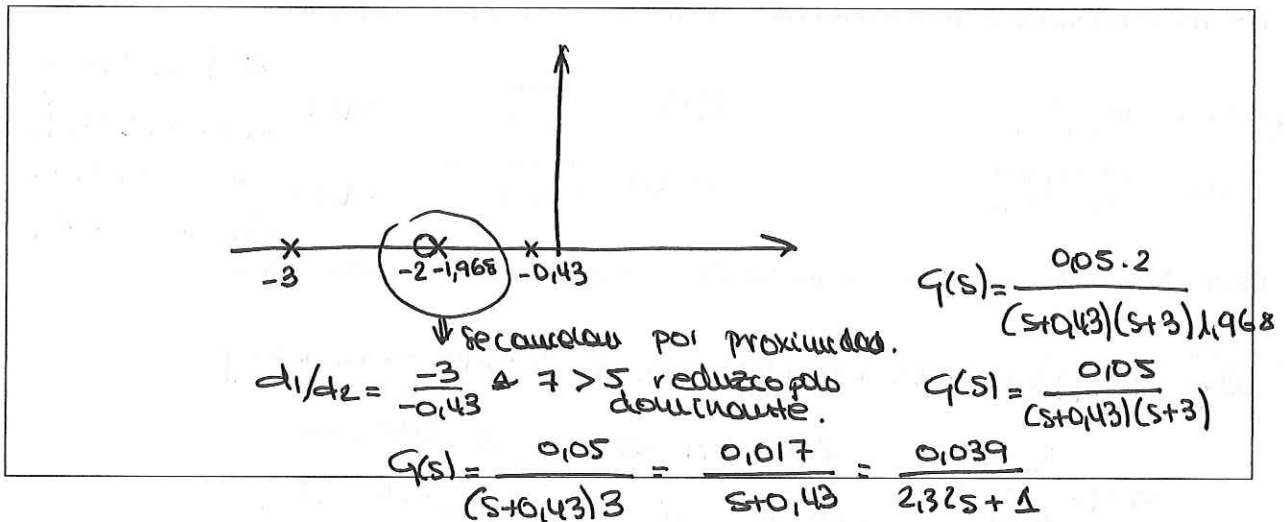 -3
-2 -1,968
-0,43
G(s) = 0,05 · 2 / (s+0,43)(s+3)1,968
⇓ se cancelan por proximidad.
d1/d2 = -3 / -0,43 ≙ 7 > 5 reduzco polo dominante.
G(s) = 0,05 / (s+0,43)(s+3)
G(s) = 0,05 / (s+0,43)3 = 0,017 / s+0,43 = 0,039 / 2,32s + 1